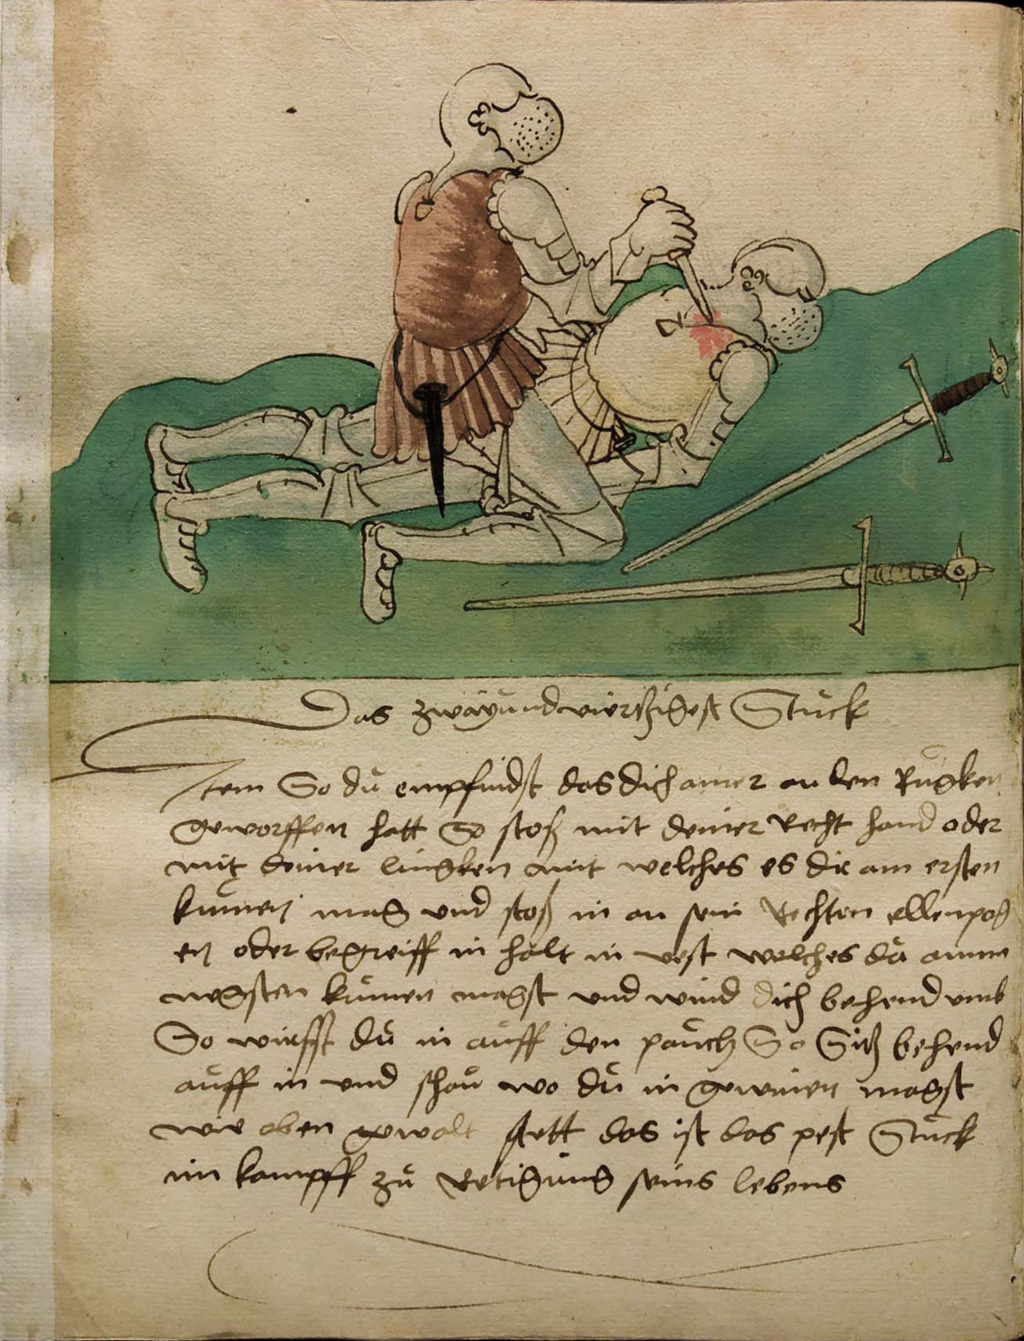 Das zwayundviertzigest Stuck
Item So du empfindst das dich ainer an den Rugken
geworffen hatt So stoß mit deiner Recht hand oder
mit deiner lingken mit welches es dir am ersten
kumen mag und stoß in an sein Rechten ellenpog
en oder begreiff in halt in vest welches du am
negsten kumen magst und wind dich behend umb
So wirfst du in auff den pauch So Sitz behend
auff in und schau wo du in gewinen magst
wie oben gemalt stett das ist das pest Stuck
im kampff zu Retigung seins lebens